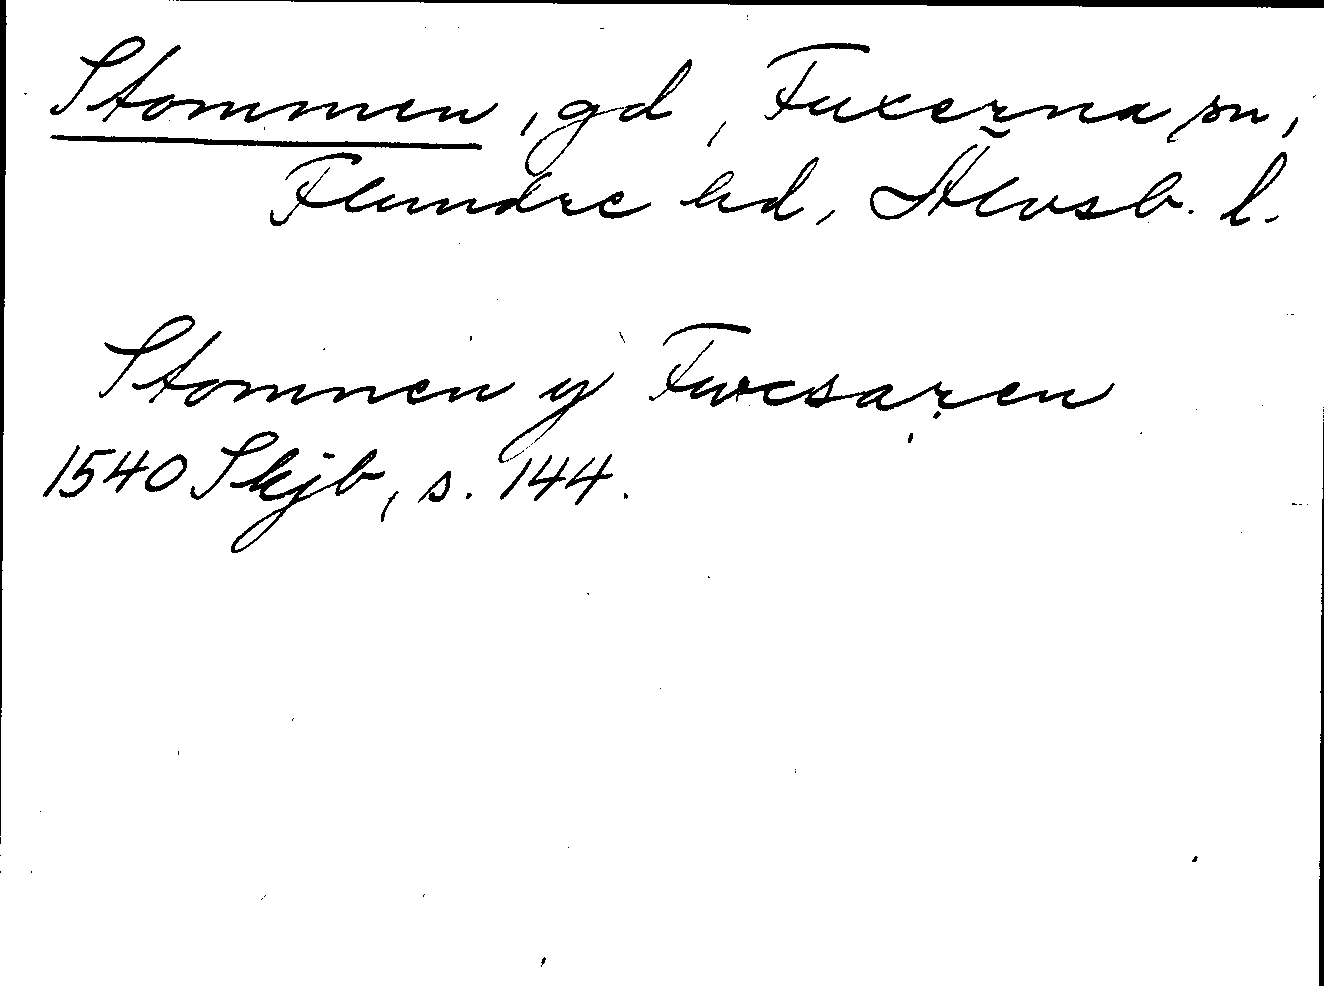 Stommen, gd, Fuxerna sn,
Flundre hd, Älvsb. l.
Stomnen y Fwcsaren
1540 Skjb, s. 144.